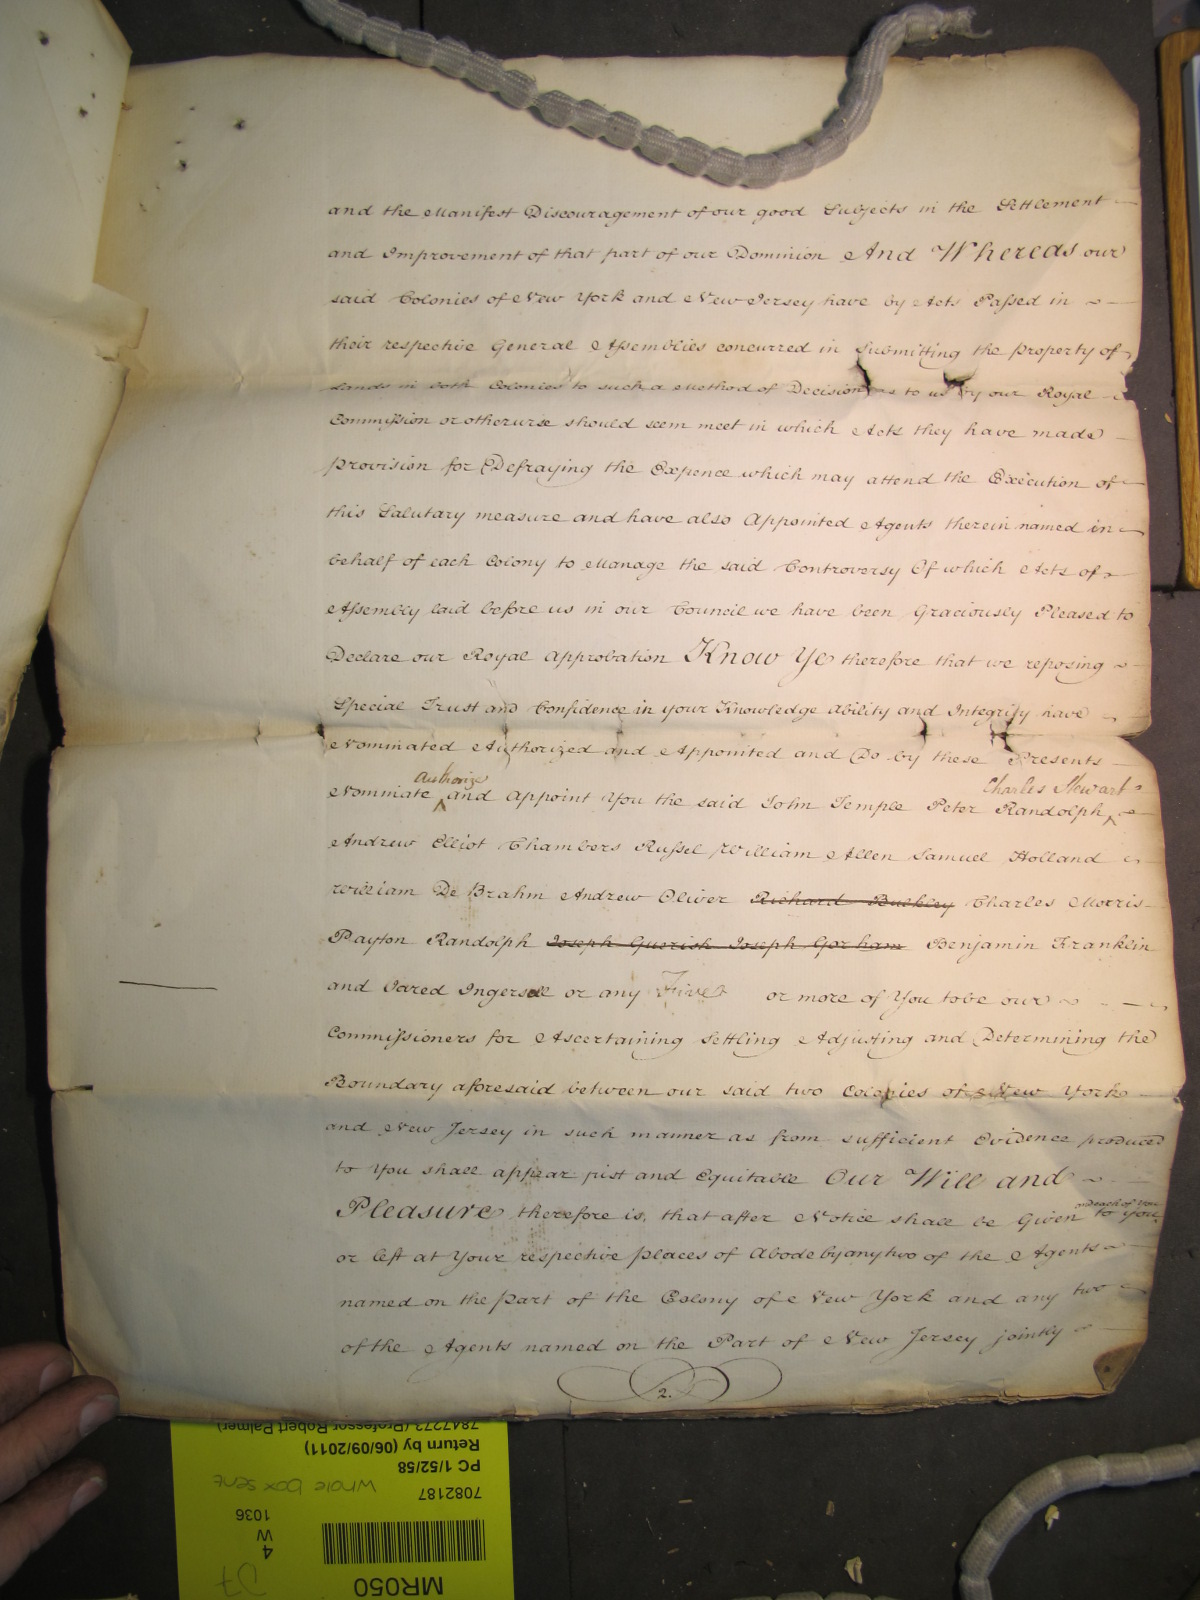 and the Manifest Discouragement of our good Subjects in the Settlement
and Improvement of that part of our Dominion And Whereas our
said Colonies of New York and New Jersey have by Acts Passed in
their respective General Assemblies concurred in Submitting the Property of
Lands in both Colonies to such a Method of Decision as to us by our Royal
Commission or otherwise should seem meet in which Acts they have made
provision for Defraying the Expence which may attend the Execution of
this Salutary measure and have also Appointed Agents therein named in
behalf of each Colony to Manage the said Controversy Of which Acts of
Assembly laid before us in our Council we have been Graciously Pleased to
Declare our Royal Approbation Know Ye therefore that we reposing
Special Trust and Confidence in your Knowledge Ability and Integrity have
Nominated Authorized and Appointed and Do by these Presents
Authorize Charles Stewart
Nominate and Appoint You the said John Temple Peter Randolph
Andrew Elliot Chambers Russel William Allen Samuel Holland
William De Brahm Andrew Oliver Richard Buckley Charles Morris
Payton Randolph Joseph Guerish Joseph Gorham Benjamin Franklin
and Jared Ingersoll or any Five or more of You to be our
Commissioners for Ascertaining Settling Adjusting and Determining the
Boundary aforesaid between our said two Colonies of New York
and New Jersey in such manner as from sufficient Evidence produced
to You shall appear just and Equitable Our Will and
and each of You
Pleasure therefore is, that after Notice shall be Given to you
or left at Your respective places of Abode by any two of the Agents
named on the Part of the Colony of New York and any two
of the Agents named on the Part of New Jersey jointly
2.
7847273 (Professor Robert Palmer)
Return by (06/09/2011)
PC 1/52/58
whole box sent
7082187
1036
W
4
D7
MR050